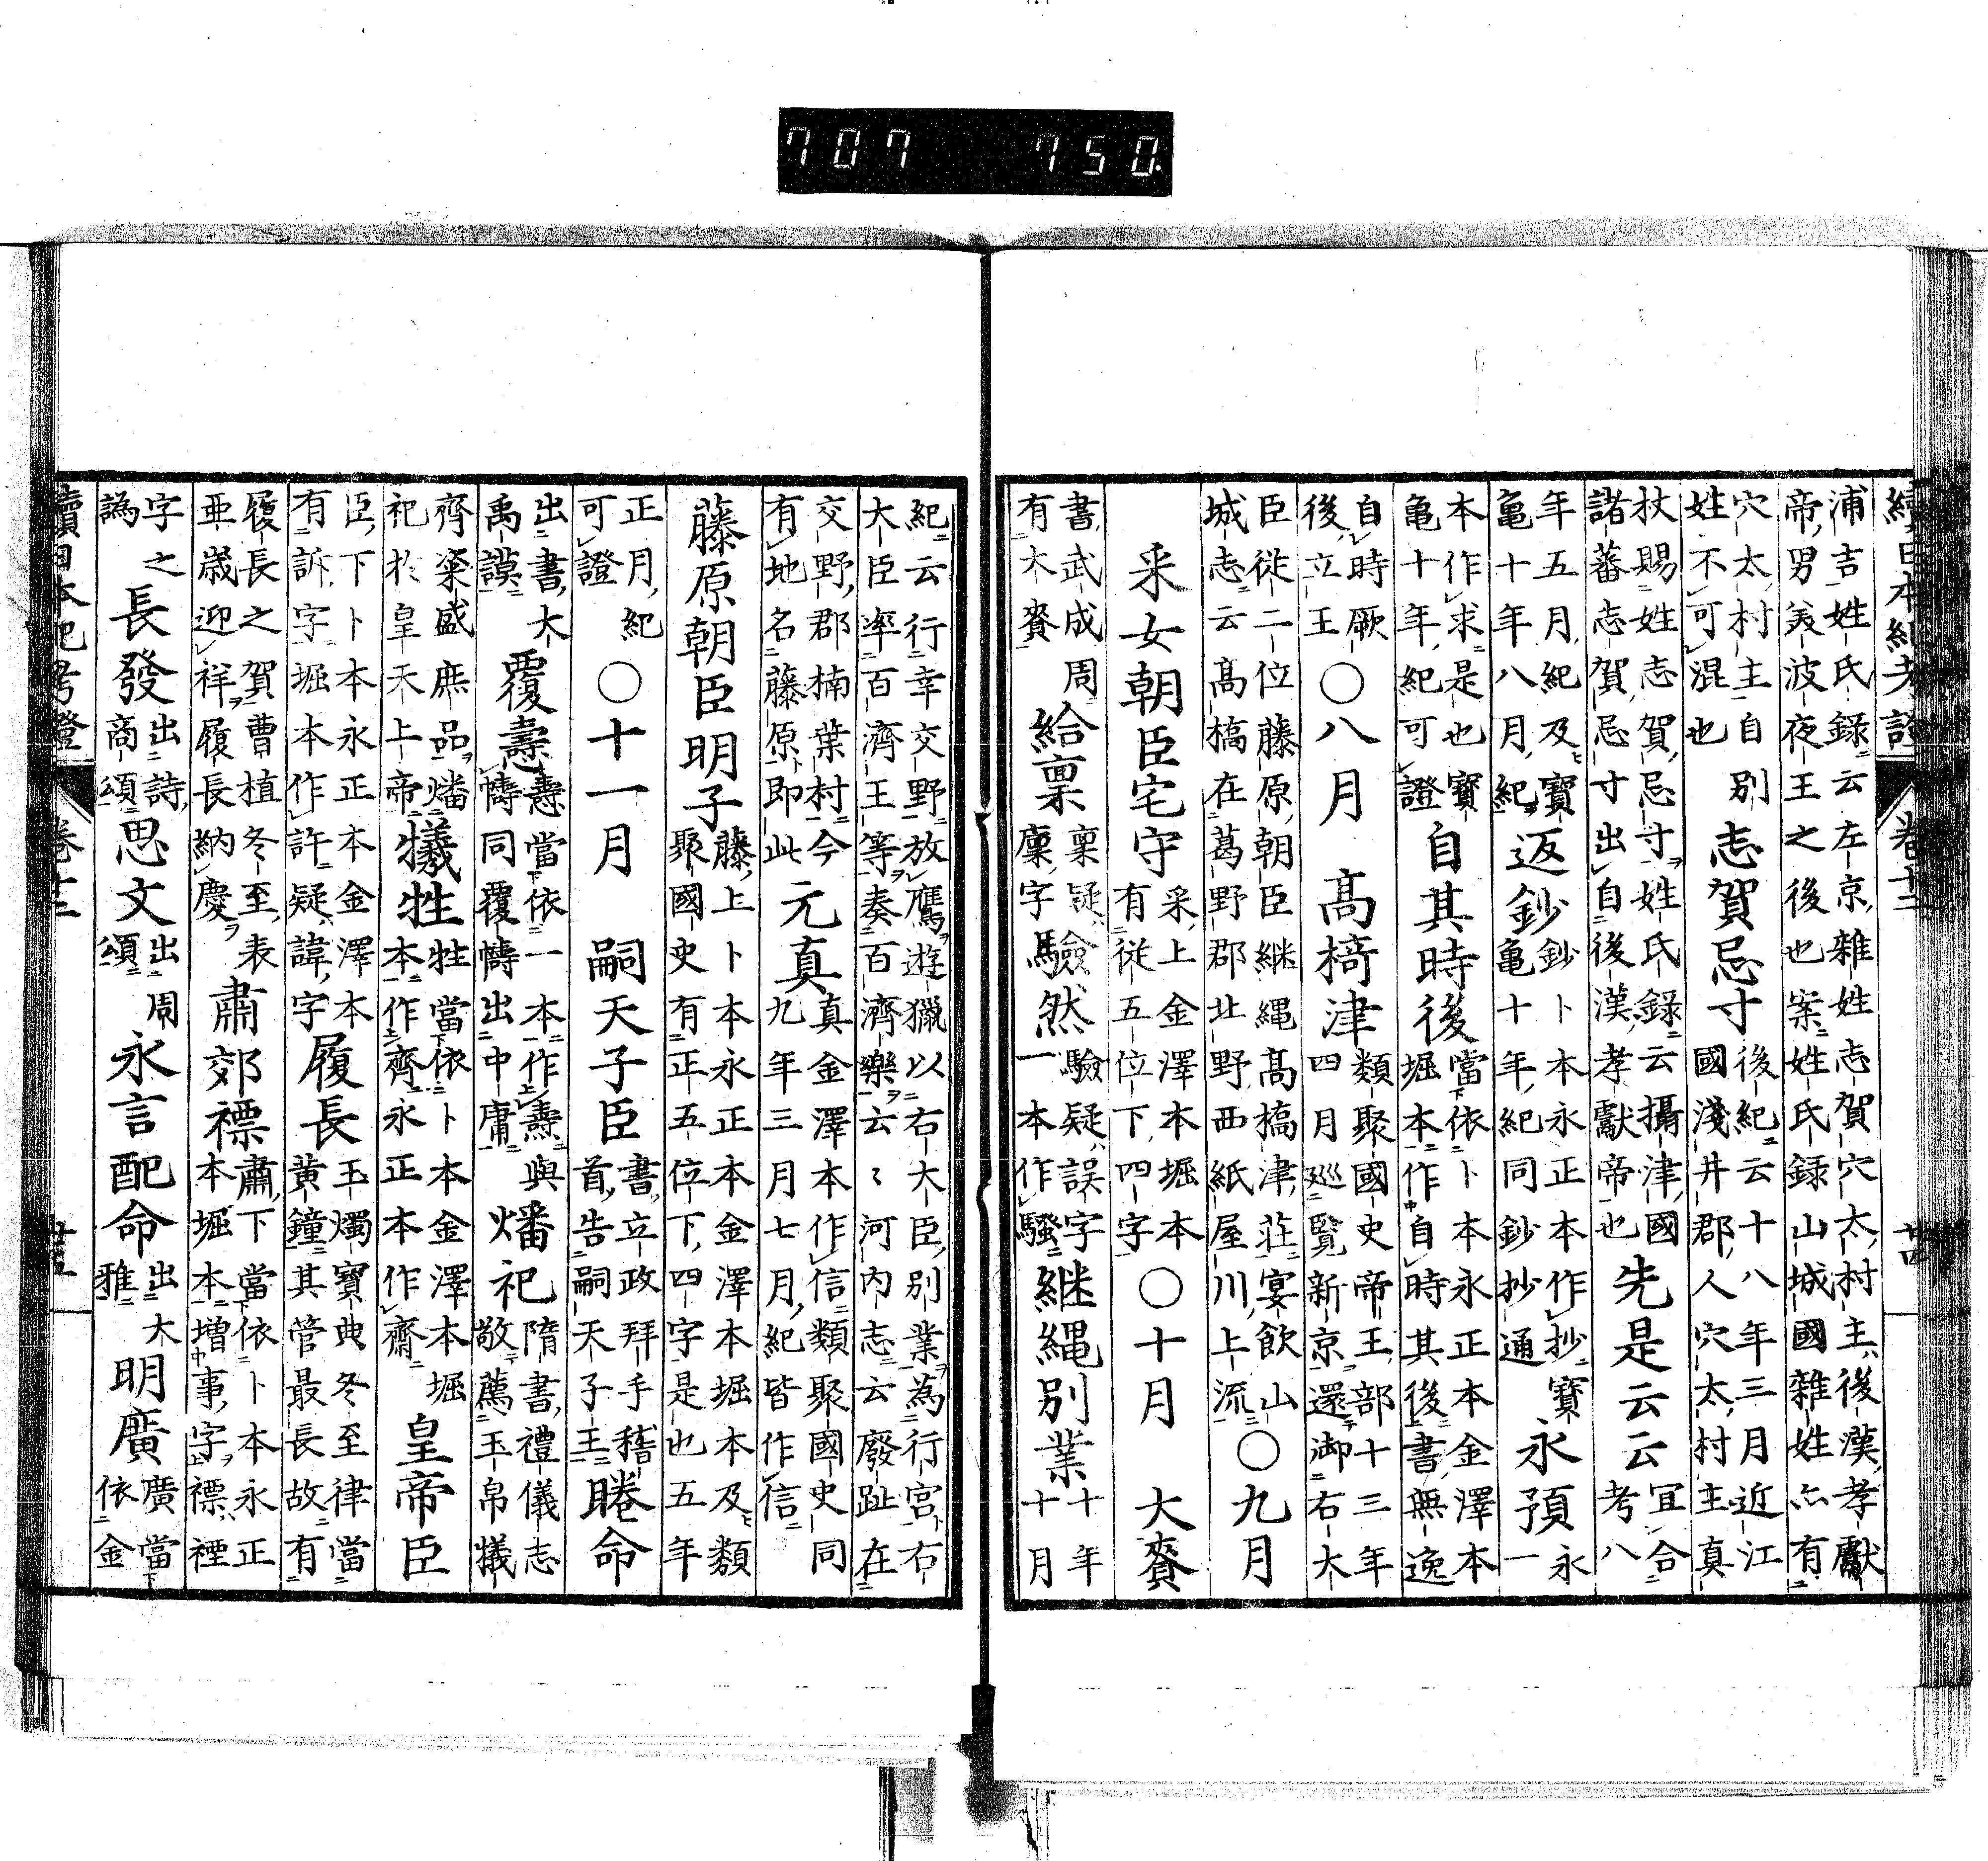 707 750.
續日本紀考證 卷十二 廿四
浦吉姓氏録云左京雜姓志賀穴太村主後漢孝獻
帝男美波夜王之後也案姓氏録山城國雜姓亦有
穴太村主自別
姓不可混也
志賀忌寸
後紀云十八年三月近江
國淺井郡人穴太村主真
杖賜姓志賀忌寸姓氏録云攝津國
諸蕃志賀忌寸出自後漢孝獻帝也
先是云云
宜合
考八
年五月紀及寶
亀十年八月紀
返鈔
鈔卜本永正本作抄寶
亀十年紀同鈔抄通
永預
永
一
本作求是也寶
亀十年紀可證
自其時後
當依卜本永正本金澤本
堀本作自時其後書無逸
自時厥
後立王
○八月
髙椅津
類聚國史帝王部十三年
四月廵覧新京還御右大
臣従二位藤原朝臣継縄髙槗津荘宴飲山
城志云髙槗在葛野郡北野西紙屋川上流
○九月
采女朝臣宅守
采上金澤本堀本
有従五位下四字
○十月
大賚
書武成周
有大賚
給稟
稟疑
廩字
驗然
驗疑誤字
一本作騷
継縄別業
十年
十月
紀云行幸交野放鷹遊獵以右大臣別業為行宮右
大臣率百濟王等奏百濟樂云〻河内志云廢趾在
交野郡楠葉村今
有地名藤原即此
元真
真金澤本作信類聚國史同
九年三月七月紀皆作信
藤原朝臣明子
藤上卜本永正本金澤本堀本及類
聚國史有正五位下四字是也五年
正月紀
可證
○十一月
嗣天子臣
書立政拜手稽
首告嗣天子王
睠命
出書大
禹謨
覆燾
燾當依一本作燾與
幬同覆幬出中庸
燔祀
隋書禮儀志
敬薦玉帛犠
齊粢盛庶品燔
祀於皇天上帝
犠牲
牲當依卜本金澤本堀
本作齊永正本作齋
皇帝臣
臣下卜本永正本金澤本
有訴字堀本作許疑諱字
履長
玉燭寶典冬至律當
黄鐘其管最長故有
履長之賀曹植冬至表
亜歳迎祥履長納慶
肅郊禋
肅下當依卜本永正
本堀本増事字禋禋
字之
譌
長發
出詩
商頌
思文
出周
頌
永言配命
出大
雅
明廣
廣當
依金
續日本紀考證 卷十二 廿五